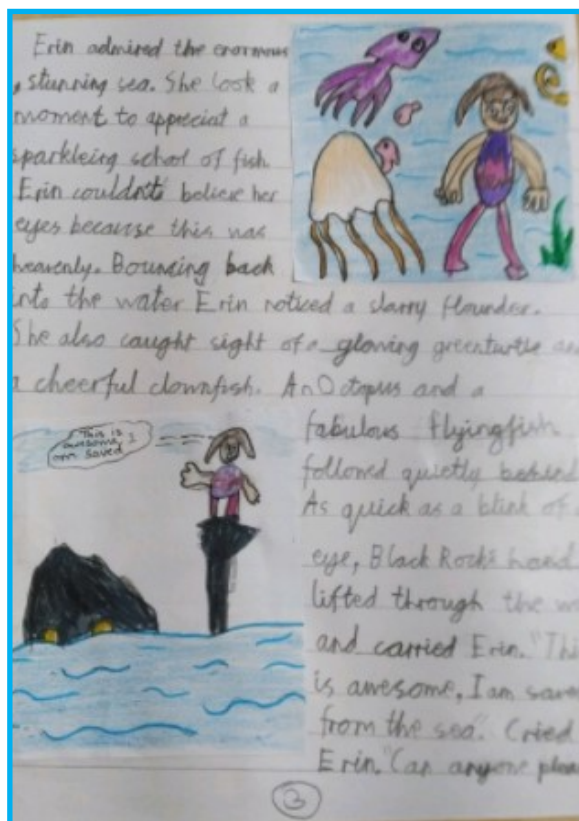 Erin admired the enormous
stunning sea. She took a
moment to appreciat a
sparkleing school of fish.
Erin couldn't believe her
eyes because this was
heavenly. Bouncing back
into the water Erin noticed a starry flounder.
She also caught sight of a glowing greenturtle an
a cheerful clownfish. An Octopus and a
fabulous flyingfish
followed quietly behind
As quick as a blink of
eye, Black Rock's hand
lifted through the
and carried Erin. "Thi
is awesome, I am save
from the sea". Cried
Erin. "Can anyone pleas
This is
awesome I
am saved
3